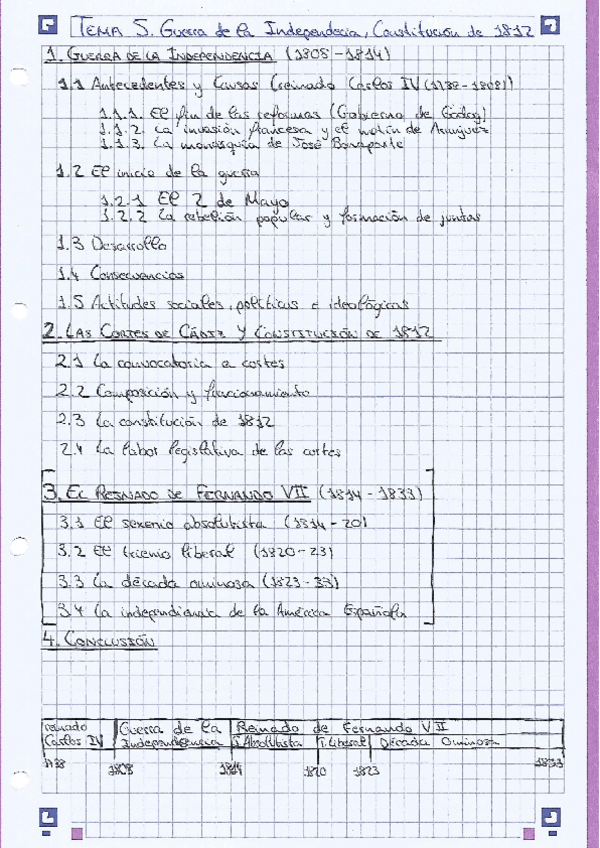 TEMA 5. Guerra de la Independecia, Constitución de 1812
1. GUERRA DE LA INDEPENDENCIA (1808-1814)
1.1 Antecedentes y Causas (reinado Carlos IV (1788-1808))
1.1.1. El fin de las reformas (Gobierno de Godoy)
1.1.2. La invasión francesa y el motín de Aranjuez
1.1.3. La monarquía de José Bonaparte
1.2 El inicio de la guerra
1.2.1 El 2 de Mayo
1.2.2 La rebelión popular y formación de juntas
1.3 Desarrollo
1.4 Consecuencias
1.5 Actitudes sociales, políticas e ideológicas
2. LAS CORTES DE CÁDIZ Y CONSTITUCIÓN DE 1812
2.1 La convocatoria a cortes
2.2 Composición y funcionamiento
2.3 La constitución de 1812
2.4 La labor legislativa de las cortes
3. EL REINADO DE FERNANDO VII (1814-1833)
3.1 El sexenio absolutista (1814-20)
3.2 El trienio liberal (1820-23)
3.3 La década ominosa (1823-33)
3.4 La independencia de la América Española
4. CONCLUSIÓN
reinado Guerra de la Reinado de Fernando VII
Carlos IV Independencia S. Absolutista T. Liberal Década Ominosa
1788 1808 1814 1820 1823 1833